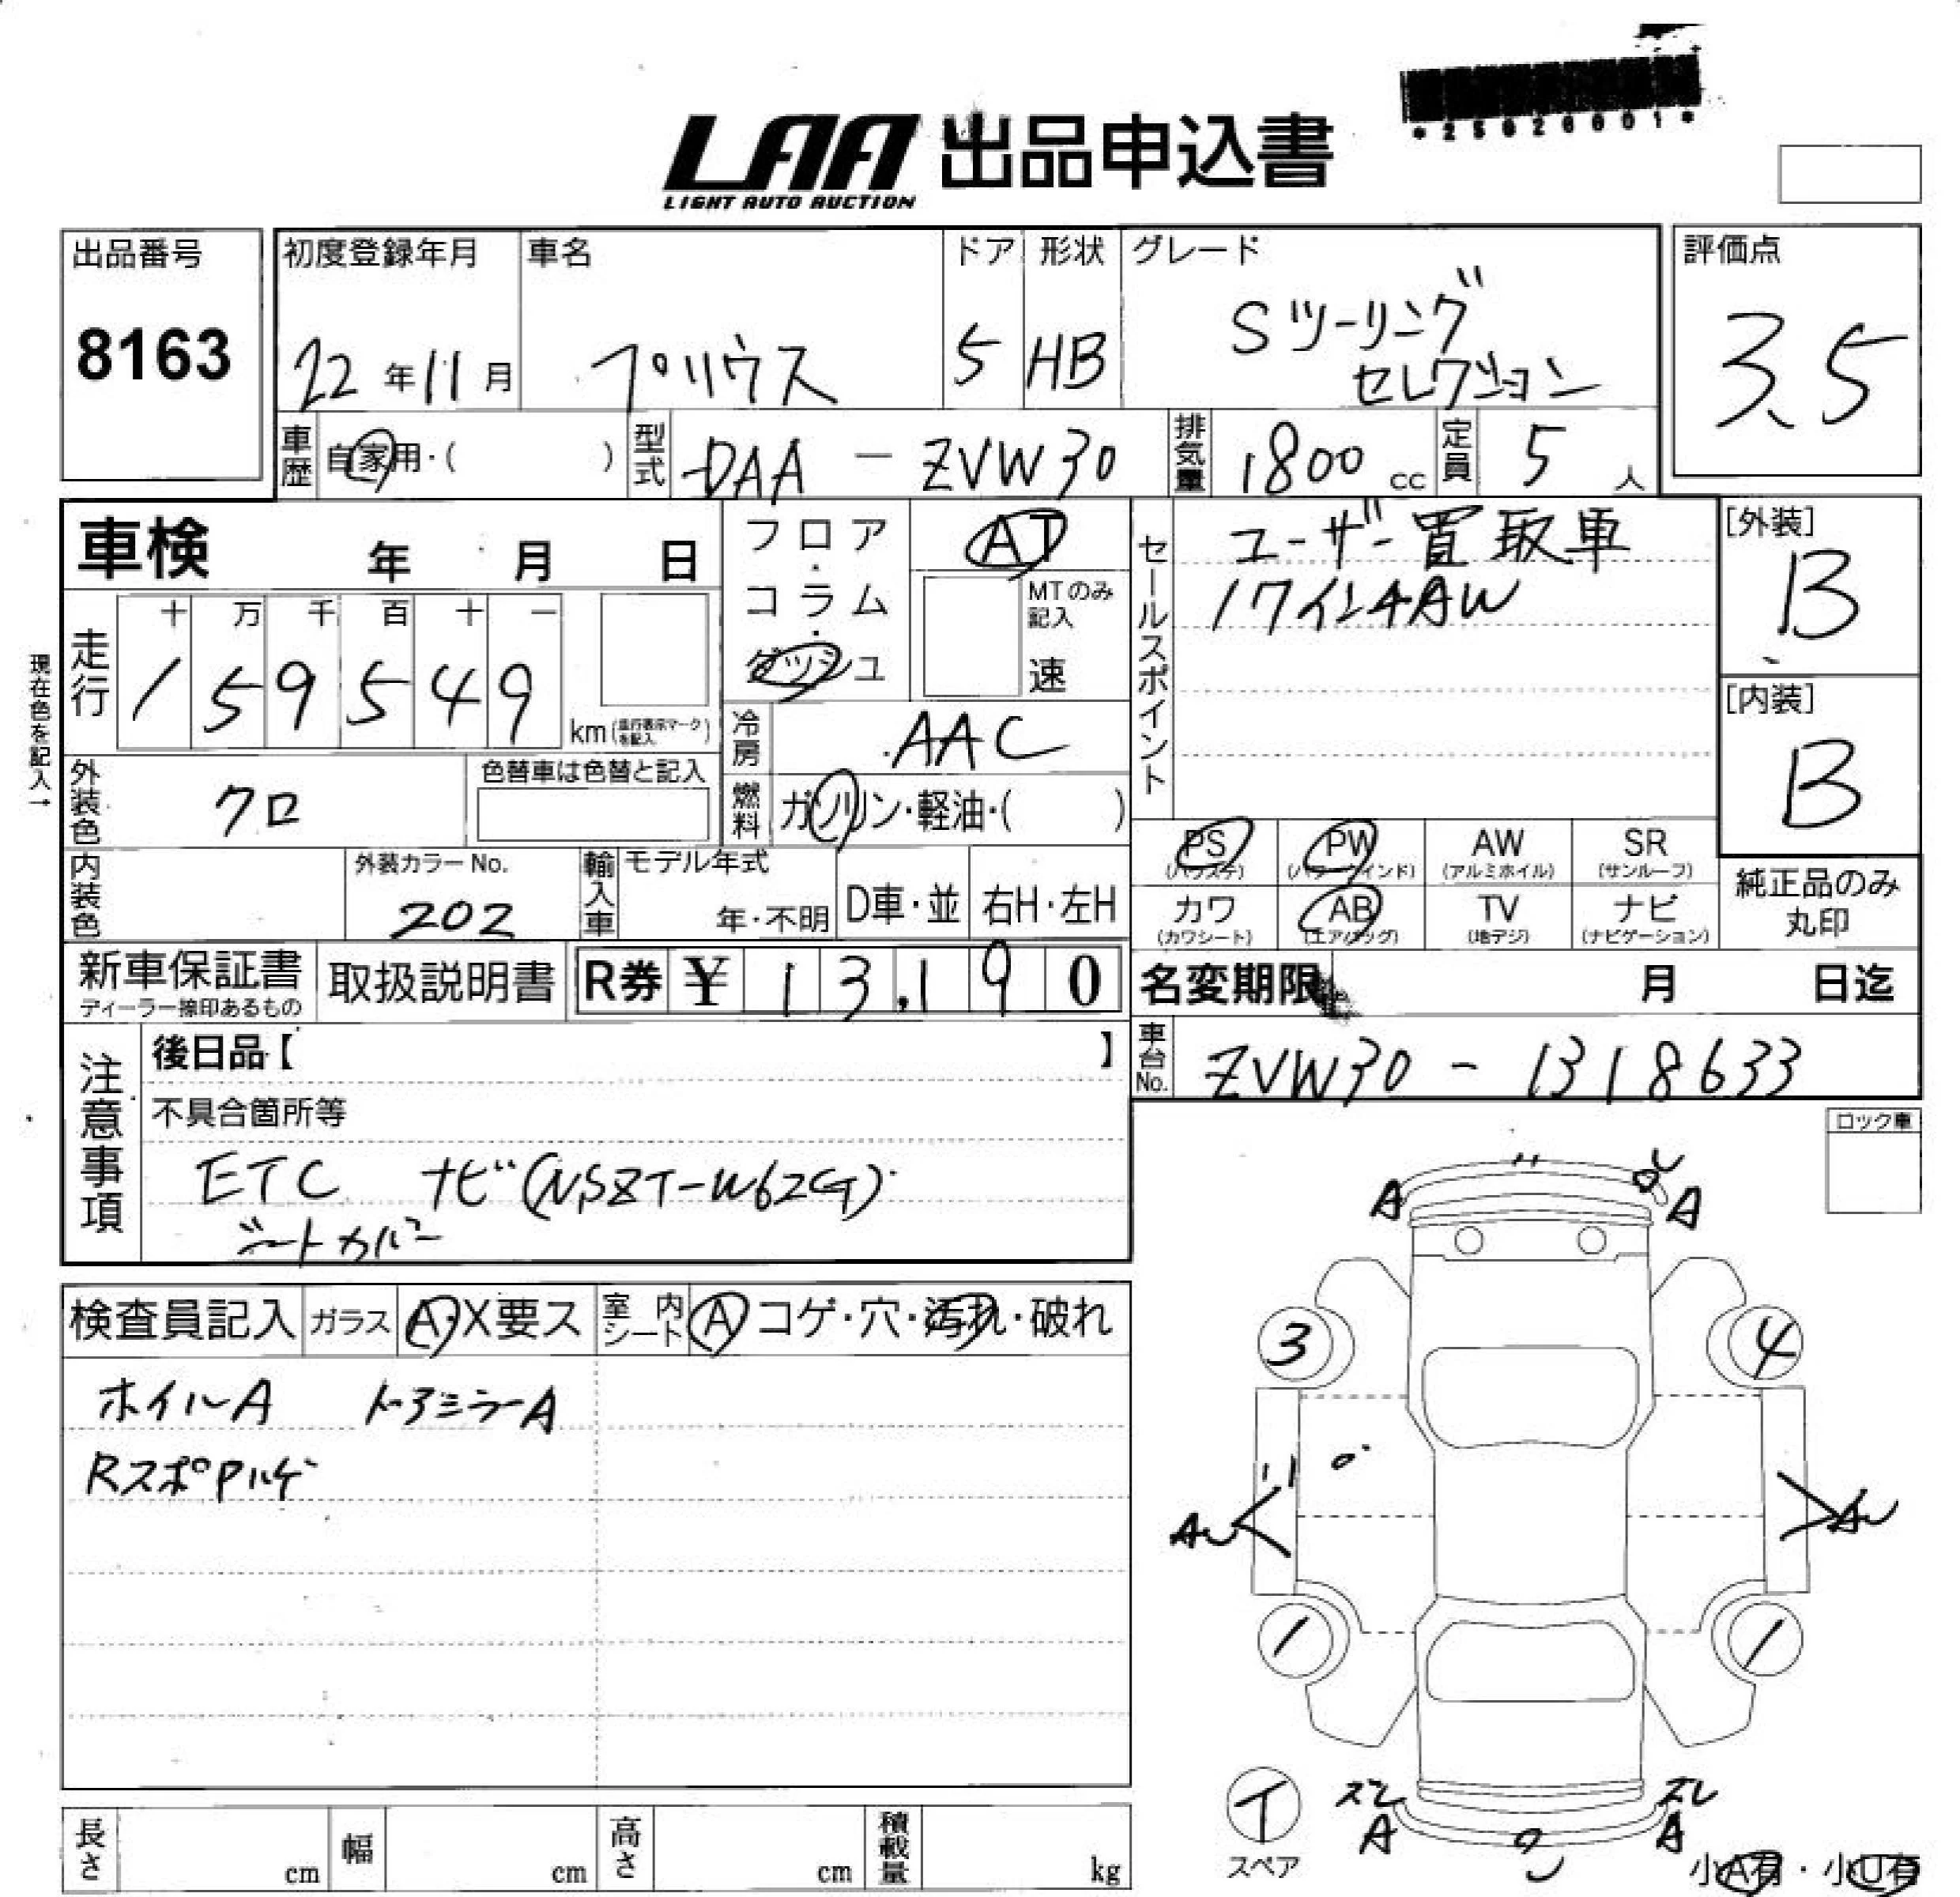 *25026001*
LAA 出品申込書
LIGHT AUTO AUCTION
出品番号
8163
初度登録年月
22年11月
車名
プリウス
ドア
5
形状
HB
グレード
Sツーリング
セレクション
評価点
3.5
車歴
自家用・( )
型式
DAA-ZVW30
排気量
1800cc
定員
5人
車検 年 月 日
フロア・コラム・ダッシュ
AT
MTのみ記入
速
セールスポイント
ユーザー買取車
17インチAW
[外装]
B
[内装]
B
現在色を記入→
走行
十 万 千 百 十 一
1 5 9 5 4 9
km(走行表示マークを記入)
冷房
AAC
外装色
クロ
色替車は色替と記入
燃料
ガソリン・軽油・( )
PS
(パワステ)
PW
(パワーウインド)
AW
(アルミホイル)
SR
(サンルーフ)
カワ
(カワシート)
AB
(エアバッグ)
TV
(地デジ)
ナビ
(ナビゲーション)
純正品のみ
丸印
内装色
外装カラーNo.
202
輸入車
モデル年式
年・不明
D車・並
右H・左H
新車保証書
ディーラー捺印あるもの
取扱説明書
R券 ¥ 13,190
名変期限 月 日迄
車台No.
ZVW30-1318633
注意事項
後日品【 】
不具合箇所等
ETC ナビ(NSZT-W62G)
シートカバー
ロック車
検査員記入
ガラス
A・X要ス
室内シート
A コゲ・穴・汚れ・破れ
ホイルA ドアミラーA
RスポPハゲ
A
A
3
4
AU
AU
1
1
イ
スペア
ズレ
A
ズレ
A
小A有・小U有
長さ cm
幅 cm
高さ cm
積載量 kg